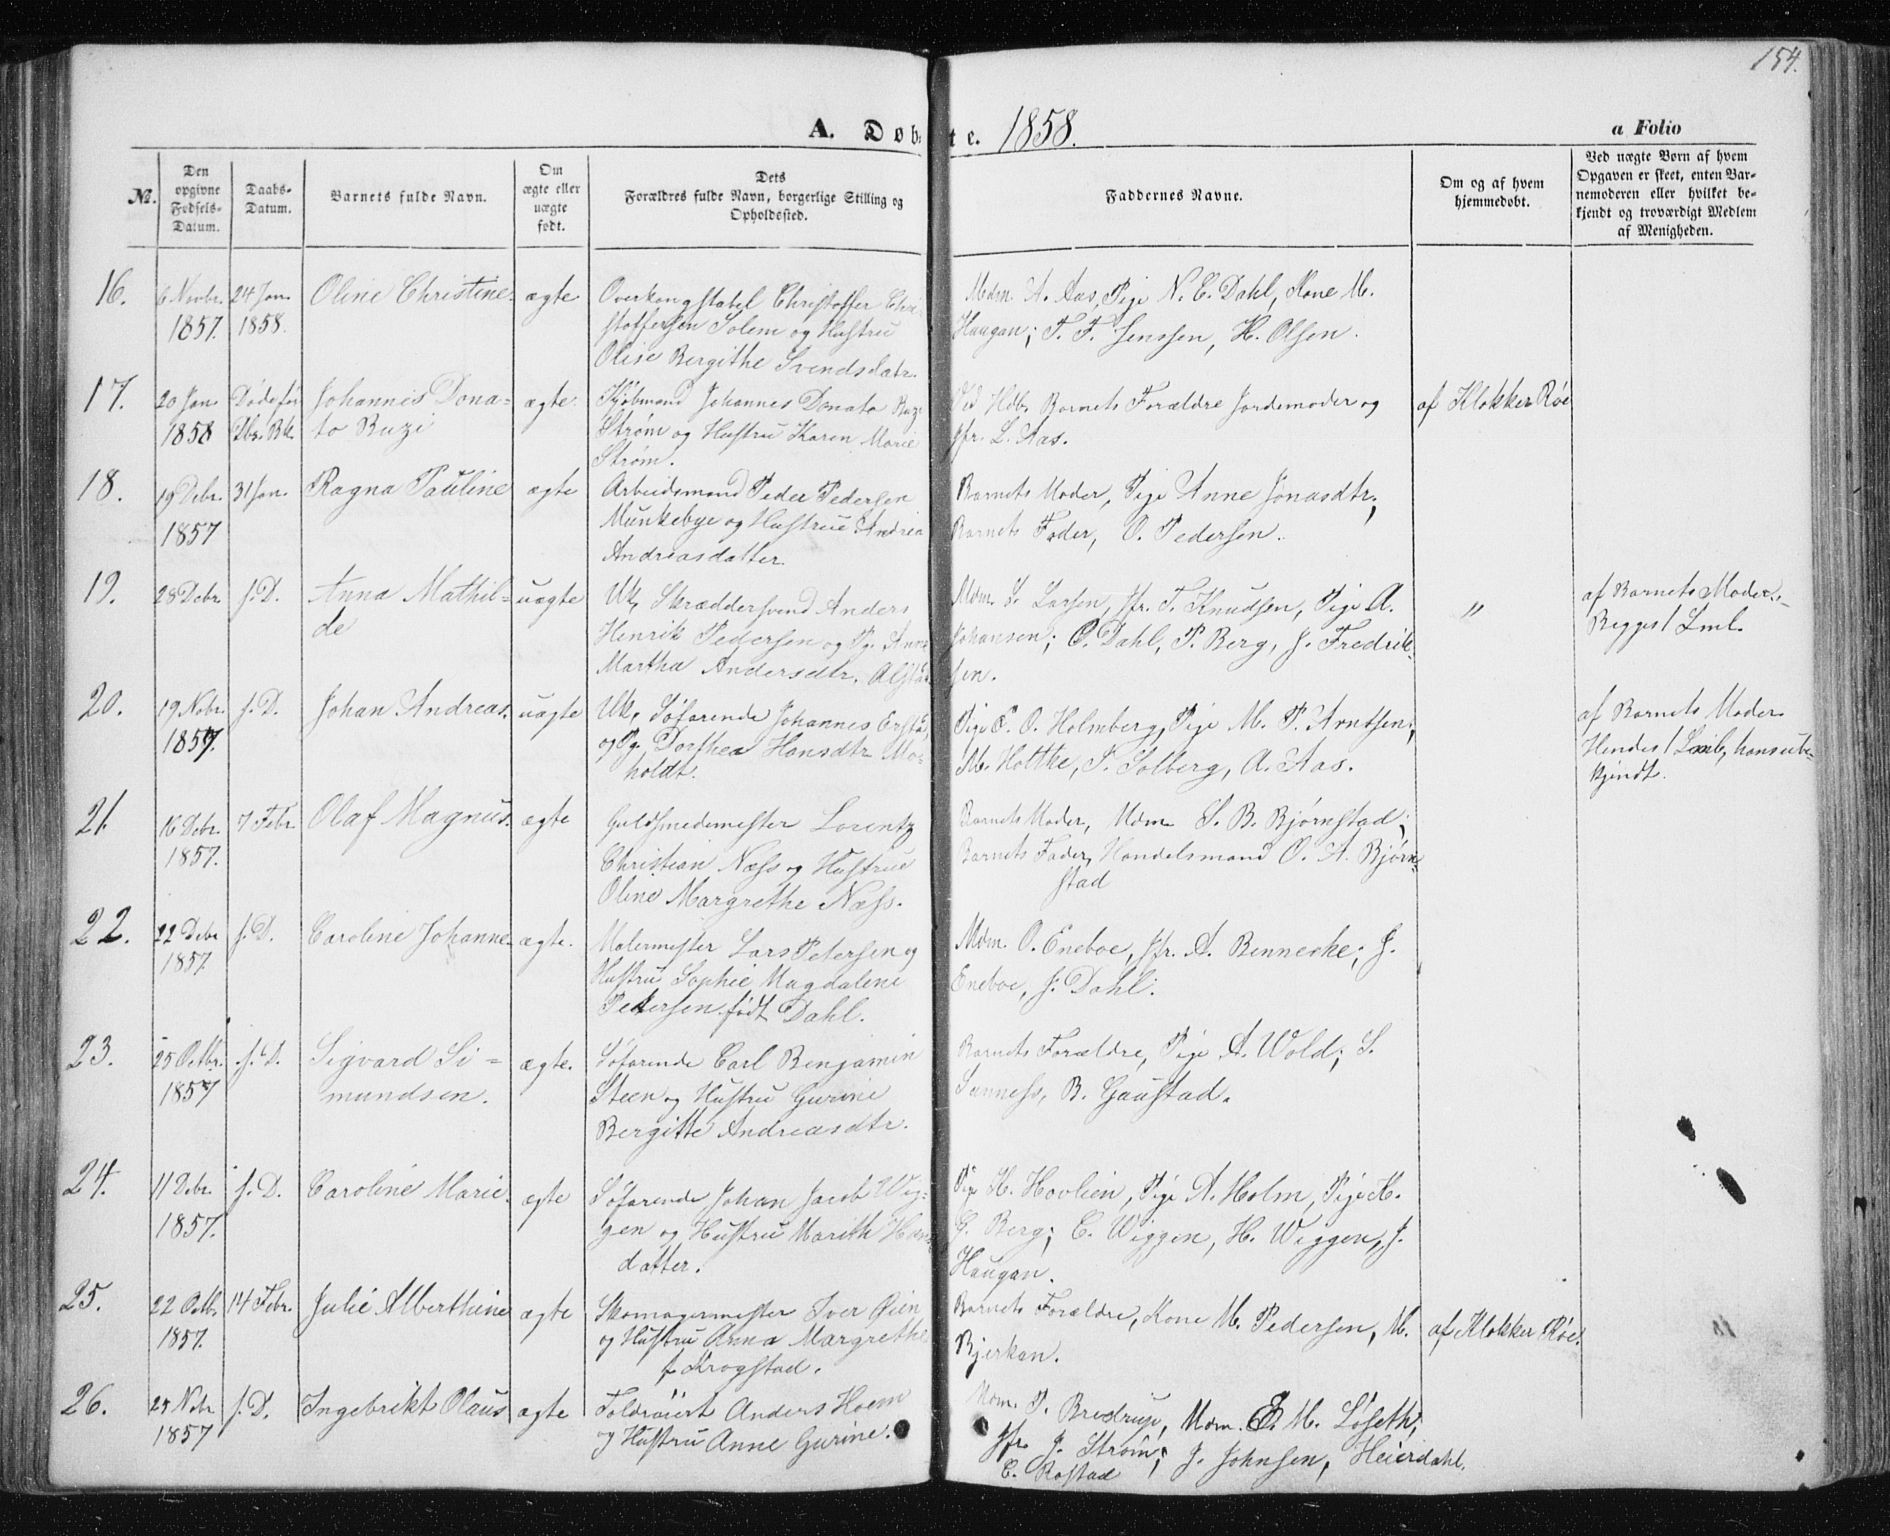 154.
A. Døbte. 1858.
a Folio
No.
Den opgivne Fødsels-Datum.
Daabs-Datum.
Barnets fulde Navn.
Om ægte eller uægte født.
Dets Forældres fulde Navn, borgerlige Stilling og Opholdssted.
Faddernes Navne.
Om og af hvem hjemmedøbt.
Ved uægte Børn af hvem Opgaven er skeet, enten Barnemoderen eller hvilket bekjendt og troværdigt Medlem af Menigheden.
16. 6 Novbr. 24 Jan. Oline Christine. ægte Overkonstabel Christoffer Chri- Mdm. A. Aas, Pige N. E. Dahl, Kone M.
1857. 1858. stoffersen Solem og Hustru Haugan; T. F. Jenssen, H. Olsen.
Olise Bergithe Svendsdatr.
17. 20 Jan. Døde før Johannes Dona- ægte. Kjøbmand Johannes Donato Buzi Ved Hdb. Barnets Forældre Jordemoder og af Klokker Røe
1858 to Buzi Strøm og Hustru Karen Marie Jfr. L. Aas.
Strøm.
18. 19 Debr. 31 Jan. Ragna Pauline ægte Arbeidsmand Peder Pedersen Barnets Moder, Pige Anne Jonasdtr;
1857 Munkebye og Hustrue Andrea Barnets Fader, O. Pedersen.
Andreasdatter
19. 28 Debr. s. D. Anna Mathil- uægte Uk, Skræddersvend Anders Mdm. S. Larsen, Jfr. T. Knudsen, Pige A. " af Barnets Moder.
de Henrik Pedersen og Pg. Anne Johansen; O. Dahl, P. Berg, J. Fredrik- Begges 1 Lml.
Martha Andersdtr. Alstad sen.
20. 19 Nobr. s. D. Johan Andreas. uægte Uk, Søfarende Johannes Pige E. O. Holmberg, Pige M. P. Arntsen; af Barnets Moder
1857. og Pg. Dorthea Hansdtr Mo- M. Holtke, P. Solberg, A. Aas. Hendes 1 Lml, hans ube-
holdt. kjendt.
21. 16 Debr. 7 Febr. Olaf Magnus. ægte Guldsmedemester Lorentz Barnets Moder, Mdm S. B. Bjørnstad;
1857. Christian Næss og Hustrue Barnets Fader, Handelsmand O. A. Bjørn-
Oline Margrethe Næss. stad
22. 22 Debr s. D. Caroline Johanne. ægte. Malermester Lars Petersen og Mdm. O. Eneboe, Jfr. A. Bennecke; J.
1857. Hustru Sophie Magdalene Eneboe, J. Dahl.
Petersen født Dahl.
23. 25 Octbr. s. D. Sigvard Si- ægte. Søfarende Carl Benjamin Barnets Forældre, Pige A. Wold; S.
1857 mundsen. Steen og Hustru Gurine Sanness, B. Gaustad.
Bergitte Andreasdtr.
24. 11 Debr. s. D. Caroline Marie. ægte Søfarende Johan Jacob Wig- Pige K. Hovlien, Pige A. Holm, Pige
1857. gen og Hustru Marith Hans- G. Berg; C. Wiggen, H. Wiggen, J.
datter. Haugan.
25. 22 Octb. 14 Febr. Julie Alberthine ægte Skomagermester Iver Øien Barnets Forældre, Kone M. Pedersen, M. af Klokker Røe.
1857. og Hustru Anna Margrethe Bjerkan.
f Krogstad.
26. 25 Nobr s. D. Ingebrikt Olaus ægte Toldrøiert Anders Hoem Mdm. P. Bredrup, Mdm. E. M. Løseth;
1857 og Hustru Anne Gurine. Jfr. J. Strøm; J. Johnsen, Heierdahl.
C. Rostad